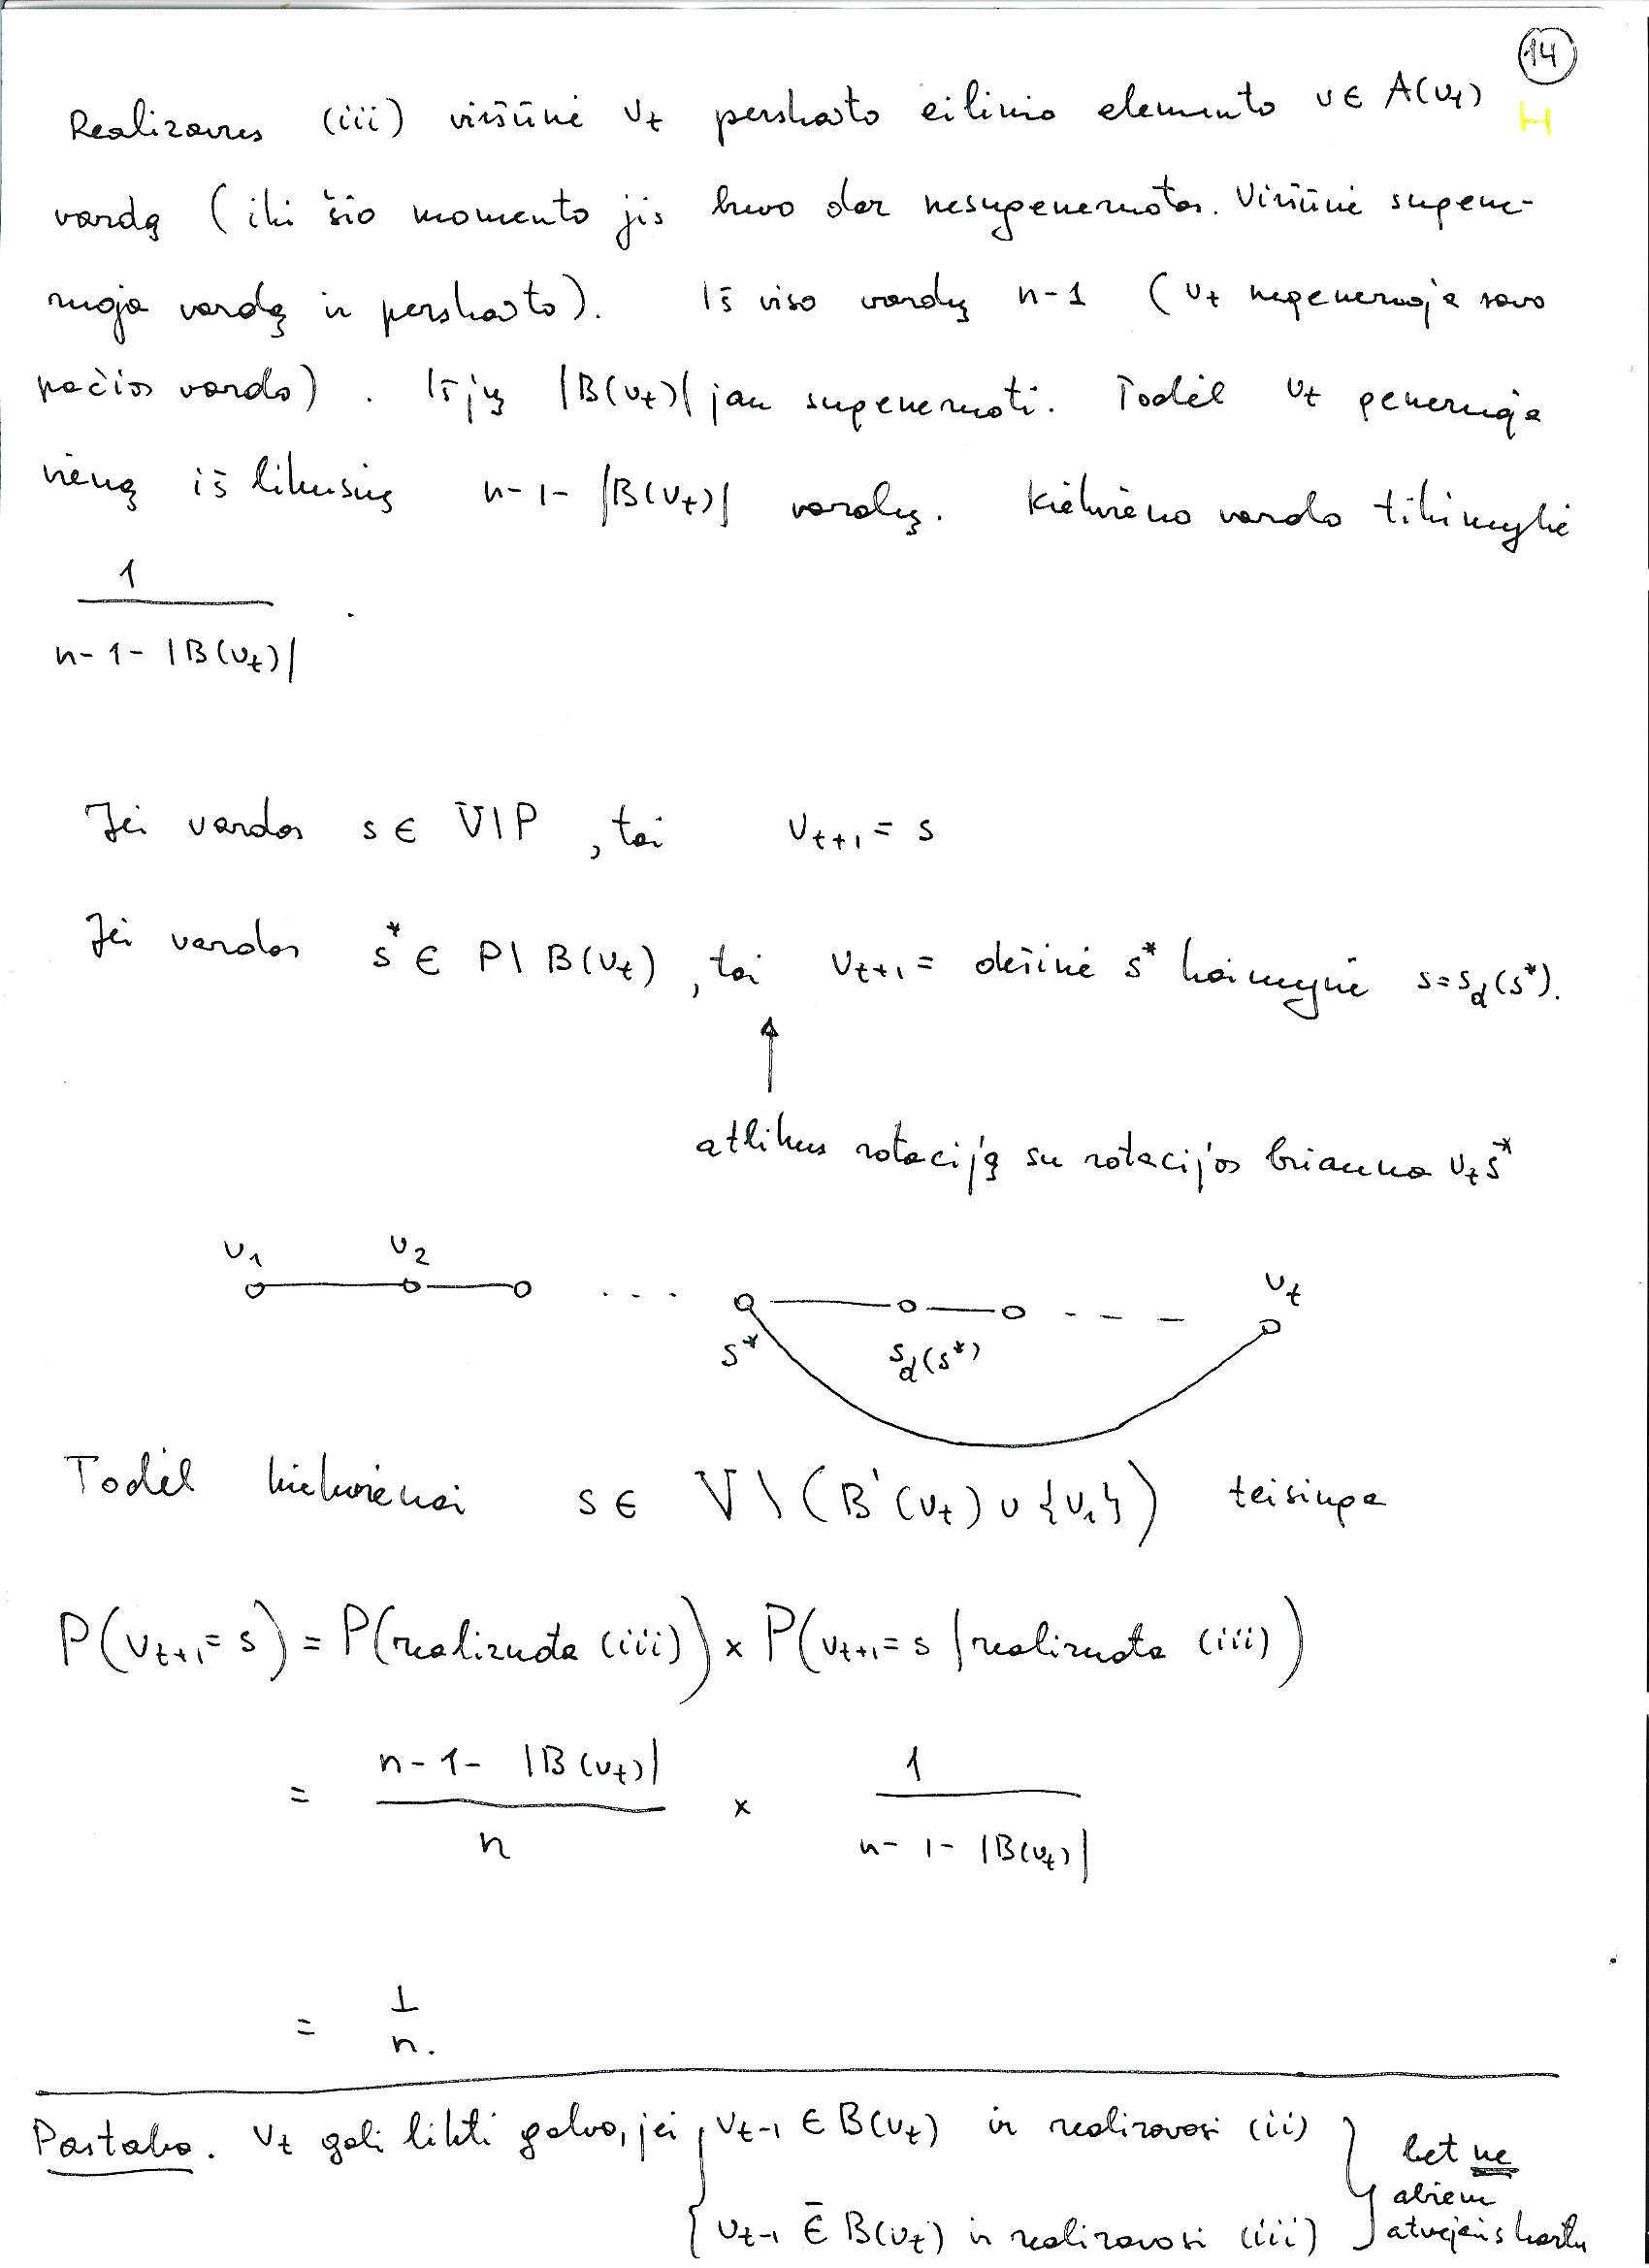 14
H
Realizavus (iii) viršūnė vₜ perskaito eilinio elemento v ∈ A(vₜ)
vardą (iki šio momento jis buvo dar nesugeneruotas. Viršūnė sugene-
ruoja vardą ir perskaito). Iš viso vardų n-1 (vₜ negeneruoja savo
pačios vardo). Iš jų |B(vₜ)| jau sugeneruoti. Todėl vₜ generuoja
vieną iš likusių n-1-|B(vₜ)| vardų. Kiekvieno vardo tikimybė
1
n-1-|B(vₜ)| .
Jei vardas s ∈ V\P, tai vₜ₊₁ = s
Jei vardas s* ∈ P\B(vₜ), tai vₜ₊₁ = dešinė s* kaimynė s=s_d(s*).
↑
atlikus rotaciją su rotacijos briauna vₜs*
v₁ v₂ ... s* s_d(s*) - - - vₜ
Todėl kiekvienai s ∈ V\(B'(vₜ) ∪ {v₁}) teisinga
P(vₜ₊₁=s) = P(realizuota (iii)) × P(vₜ₊₁=s | realizuota (iii))
n-1-|B(vₜ)| 1
= ———— × ————
n n-1-|B(vₜ)|
1
= —
n.
Pastaba. vₜ gali likti galva, jei { vₜ₋₁ ∈ B(vₜ) ir realizavosi (ii) } bet ne
vₜ₋₁ ∈̄ B(vₜ) ir realizavosi (iii) abiem
atvejais kartu